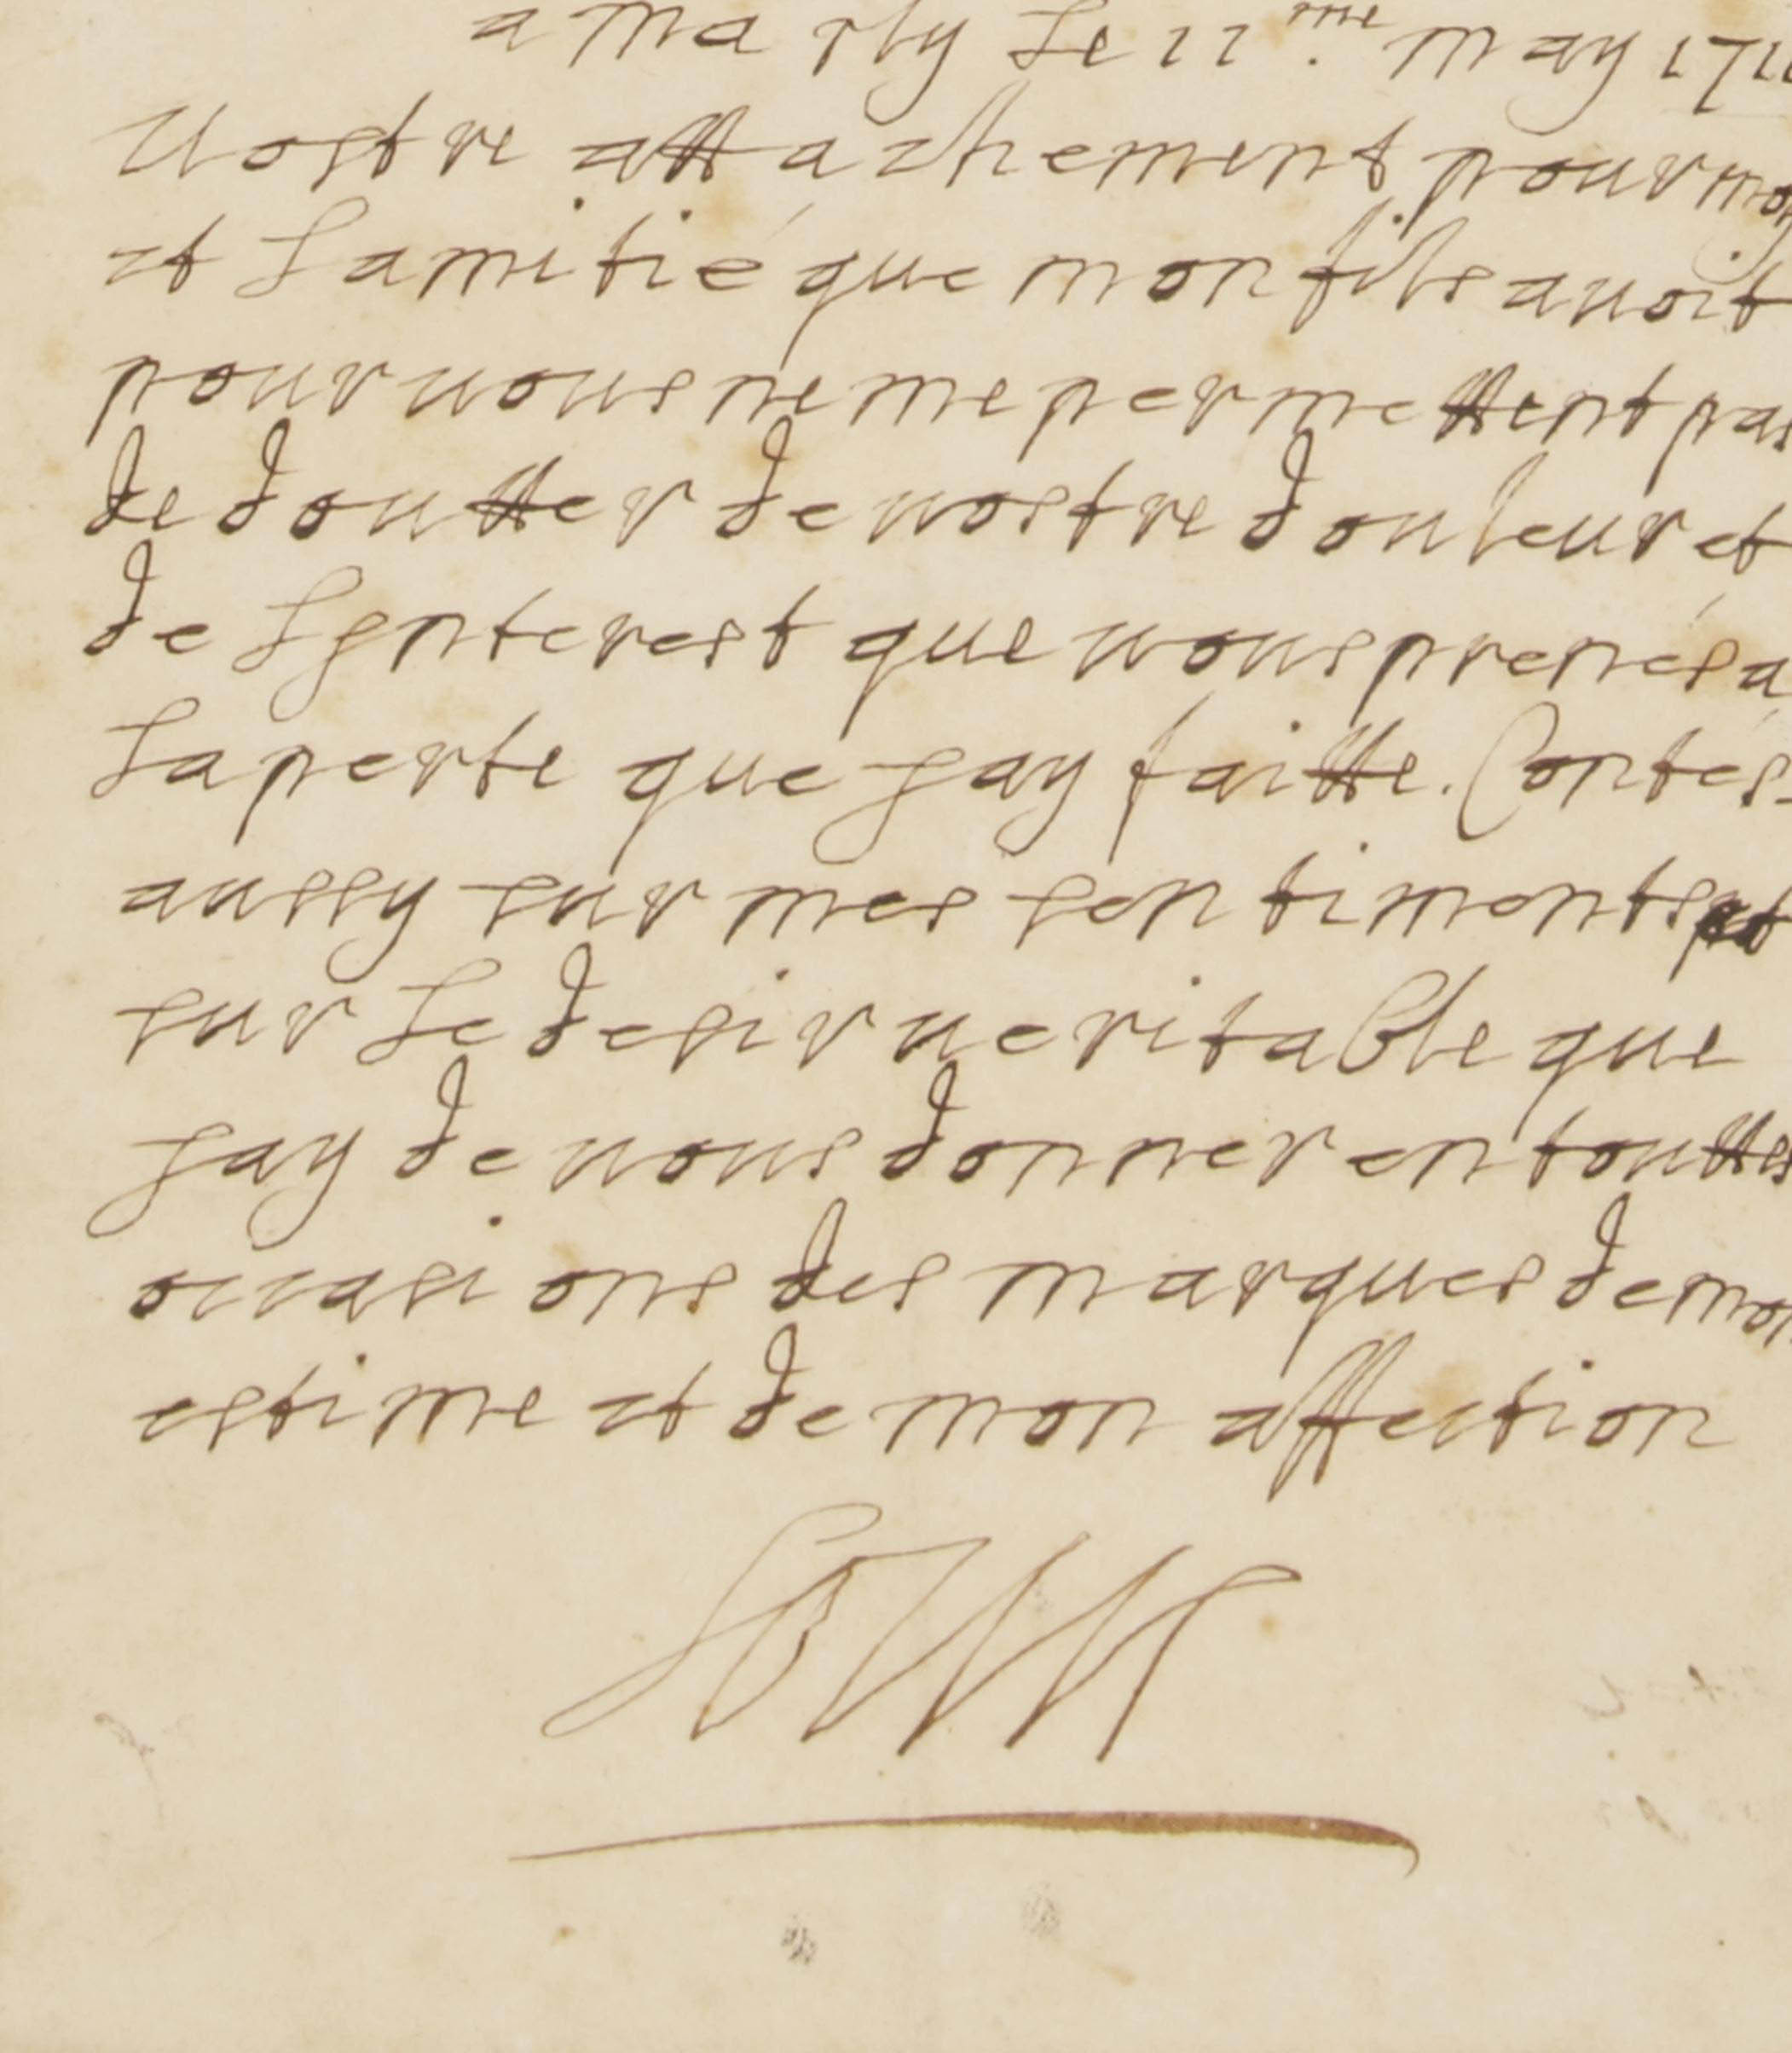 a Marly Le 11.me may 171
Vostre attachement pour moy
et Lamitié que mon fils auoit
pour uous ne me permettent pas
de doutter de uostre douleur et
de Lynterest que uous prenés a
La perte que jay faitte. Contés
aussy sur mes sentiments et
sur Le desir ueritable que
jay de uous donner en touttes
occasions des marques de mon
estime et de mon affection
Louis